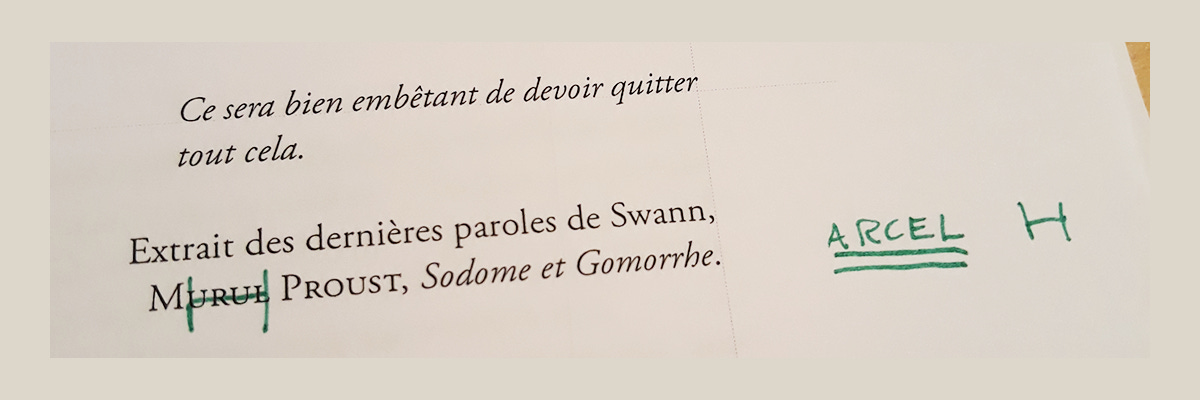 Ce sera bien embêtant de devoir quitter
tout cela.
Extrait des dernières paroles de Swann,
MURUL PROUST, Sodome et Gomorrhe.
ARCEL